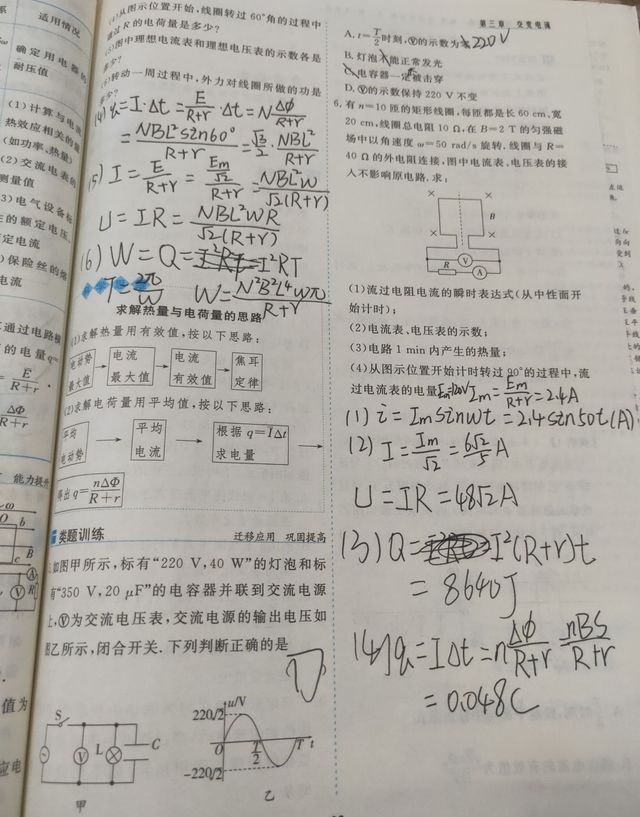 适用情况
确定用电器的
耐压值
(1)计算与电
热效应相关的量
(如功率、热量)
(2)交流电表的
测量值
3)电气设备标
的额定电压、
定电流
)保险丝的熔
电流
通过电路横
的电量q=
E/(R+r),
ΔΦ/(R+r)
能力提升
(4)从图示位置开始,线圈转过60°角的过程中
通过R的电荷量是多少?
(5)图中理想电流表和理想电压表的示数各是
多少?
转动一周过程中,外力对线圈所做的功是
多少?
(4) q=I·Δt=E/(R+r)·Δt=N ΔΦ/(R+r)
=NBL²sin60°/(R+r)=√3/2·NBL²/(R+r)
(5) I=E/(R+r)=(Em/√2)/(R+r)=NBL²w/(√2(R+r))
U=IR=NBL²wR/(√2(R+r))
(6) W=Q=I²RT
T=2π/w W=N²B²L⁴wπ/(R+r)
求解热量与电荷量的思路
(1)求解热量用有效值,按以下思路:
电动势最大值→电流最大值→电流有效值→焦耳定律
(2)求解电荷量用平均值,按以下思路:
平均电动势→平均电流→根据q=IΔt求电量→
得出q=nΔΦ/(R+r)
类题训练 迁移应用 巩固提高
如图甲所示,标有“220 V,40 W”的灯泡和标
有“350 V,20 μF”的电容器并联到交流电源
上,Ⓥ为交流电压表,交流电源的输出电压如
图乙所示,闭合开关.下列判断正确的是
D
S
V L C
甲
u/V
220√2
O T/2 T t
-220√2
乙
第三章 交变电流
A.t=T/2时刻,Ⓥ的示数为零 220V
B.灯泡不能正常发光
C.电容器一定被击穿
D.Ⓥ的示数保持220 V不变
6.有n=10匝的矩形线圈,每匝都是长60 cm、宽
20 cm,线圈总电阻10 Ω,在B=2 T的匀强磁
场中以角速度ω=50 rad/s旋转.线圈与R=
40 Ω的外电阻连接,图中电流表、电压表的接
入不影响原电路.求:
B
V
R A
(1)流过电阻电流的瞬时表达式(从中性面开
始计时);
(2)电流表、电压表的示数;
(3)电路1 min内产生的热量;
(4)从图示位置开始计时转过90°的过程中,流
过电流表的电量 Em=120V Im=Em/(R+r)=2.4A
(1) i=Imsinwt=2.4sin50t(A)
(2) I=Im/√2=6√2/5 A
U=IR=48√2A
(3) Q=I²(R+r)t
=8640J
(4) q=IΔt=n ΔΦ/(R+r) nBS/(R+r)
=0.048C